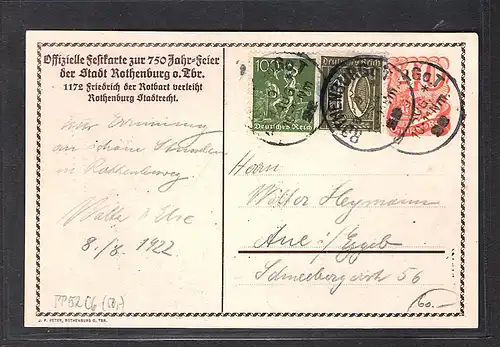 Offizielle Festkarte zur 750 Jahr-Feier
der Stadt Rothenburg o. Tbr.
1172 Friedrich der Rotbart verleiht
Rothenburg Stadtrecht.
100
Deutsches Reich
Deutsches Reich
Zur Erinnerung
an schöne Stunden
in Rothenburg
8./8. 1922
Herrn
Walter Heymann
Aue i/Erzgeb
Schneebergerstr 56
PP 52 C6
60.-
J. P. PETER, ROTHENBURG O. TBR.